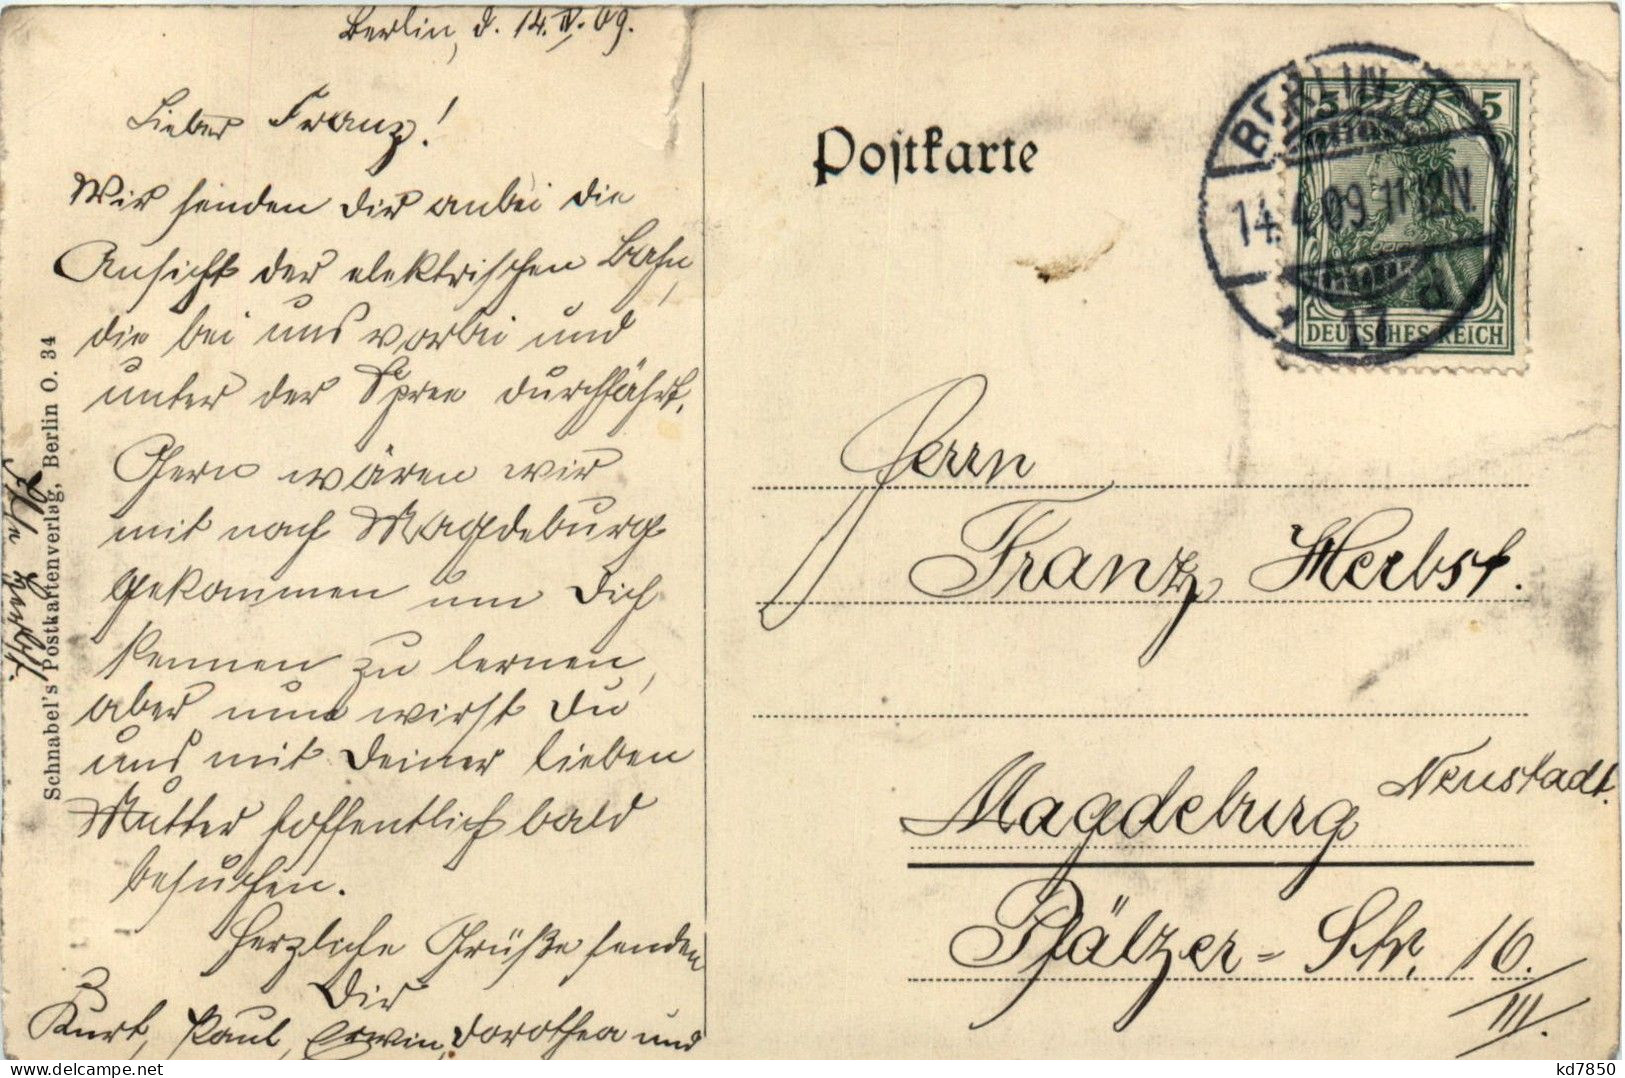 Berlin, d. 14. IV. 09.
Lieber Franz!
Wir senden Dir anbei die
Ansicht der elektrischen Bahn,
die bei uns vorbei und
unter der Spree durchfährt.
Gern wären wir
mit nach Magdeburg
gekommen um Dich
kennen zu lernen,
aber nun wirst Du
uns mit Deiner lieben
Mutter hoffentlich bald
besuchen.
Herzliche Grüße senden
Dir
Kurt, Paul, Erwin, Dorothea und
Herbst.
Schnabel's Postkartenverlag, Berlin O. 34
Postkarte
BERLIN O
14.4.09.11-12N.
17 d
5 5
DEUTSCHES REICH
Herrn
Franz Herbst.
Magdeburg Neustadt.
Pfälzer-Str. 16.
III.
kd7850